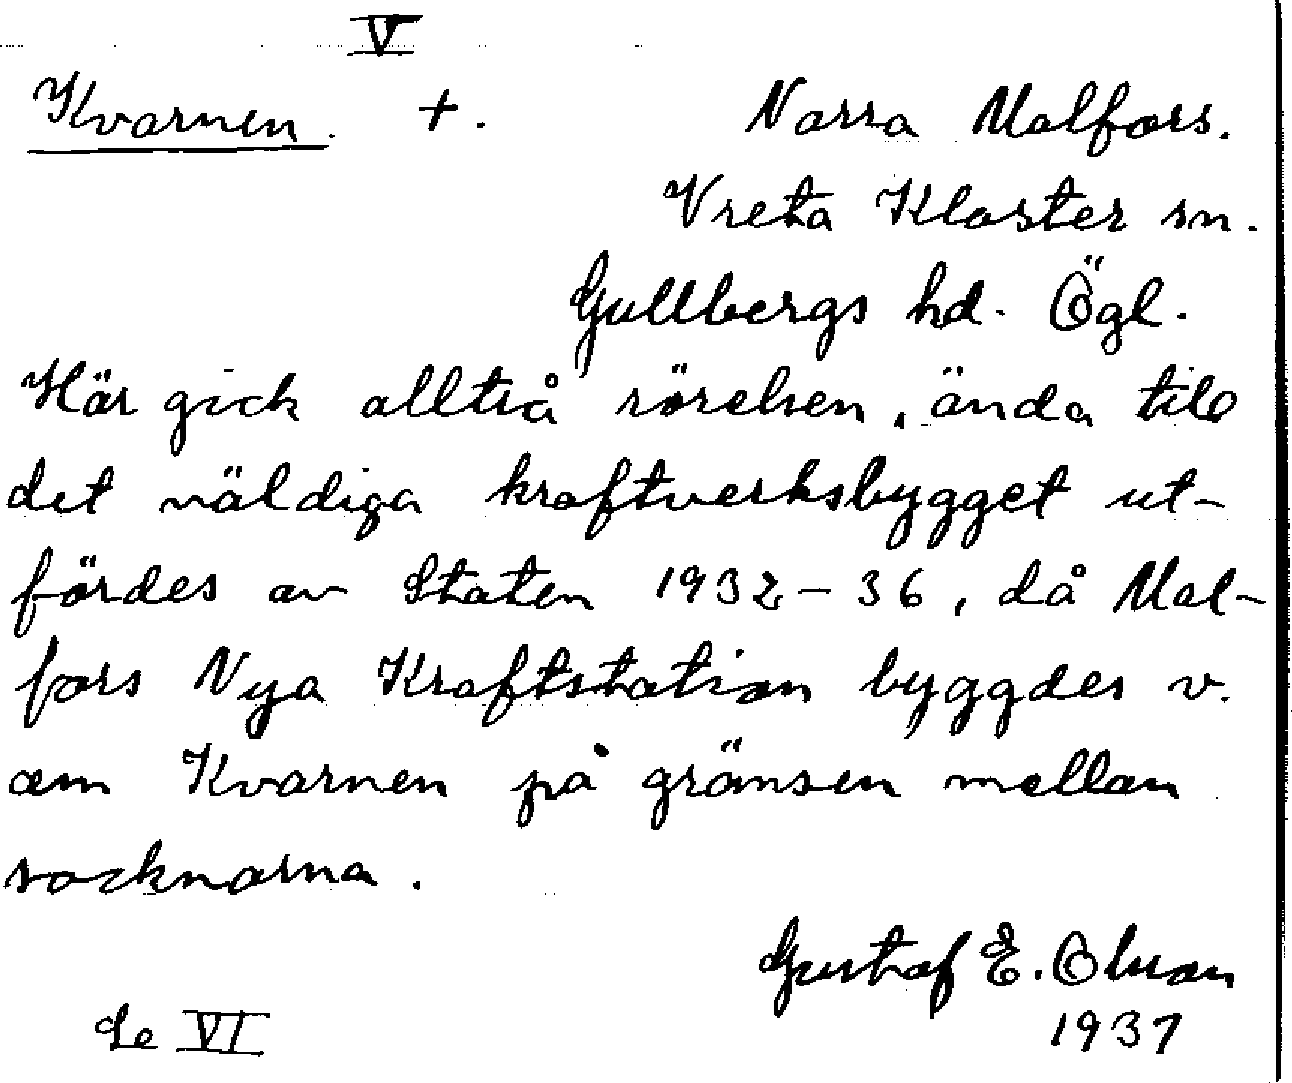 V
Kvarnen. +. Norra Malfors.
Vreta Kloster sn.
Gullbergs hd. Ögl.
Här gick alltså rörelsen, ända till
det väldiga kraftverksbygget ut-
fördes av Staten 1932-36, då Mal-
fors Nya Kraftstation byggdes v.
om Kvarnen på gränsen mellan
socknarna.
Gustaf E. Olson
Se VI 1937